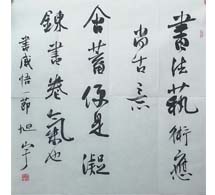 書法藝術應
尚古意
含蓄 是凝
鍊書卷氣也
書感悟一節 旭宇